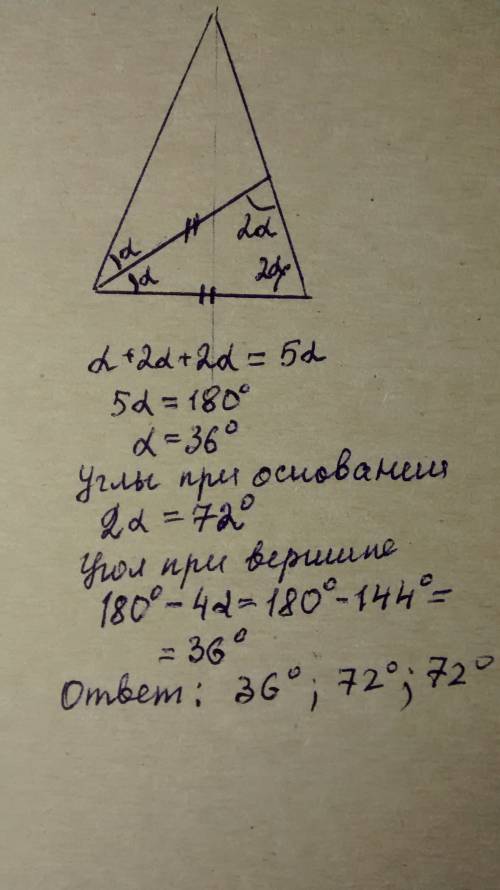 α
α
2α
2α
α + 2α + 2α = 5α
5α = 180°
α = 36°
Углы при основании
2α = 72°
Угол при вершине
180° - 4α = 180° - 144° =
= 36°
Ответ: 36°; 72°; 72°